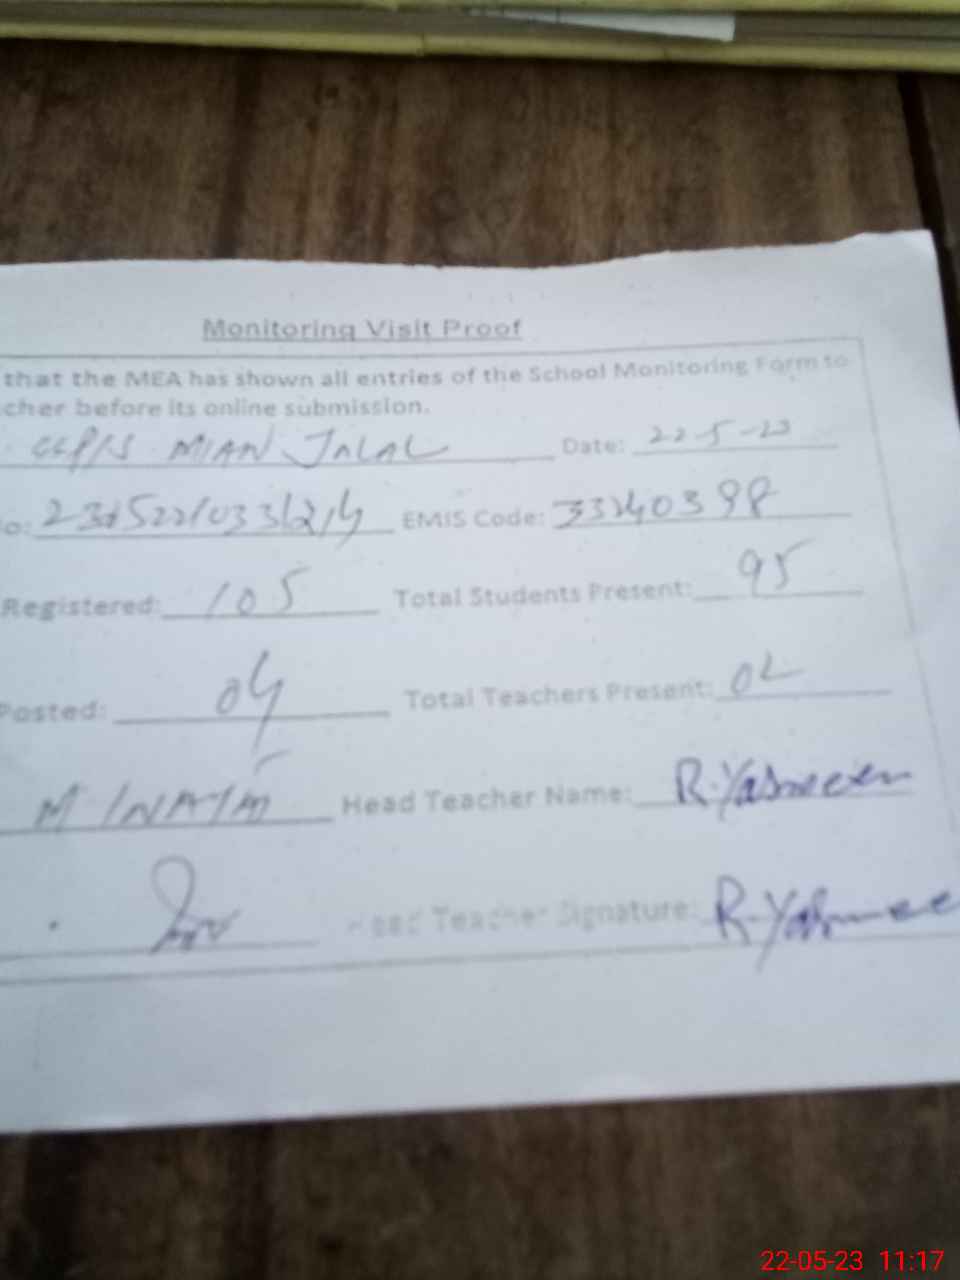 Monitoring Visit Proof
that the MEA has shown all entries of the School Monitoring Form to
cher before its online submission.
MIAN JALAL Date: 22-5-23
o: EMIS Code: 33240398
Registered: 105 Total Students Present: 95
Posted: 04 Total Teachers Present: 02
M Head Teacher Name: R.Yasmeen
Head Teacher Signature: R.Yasmee
22-05-23 11:17